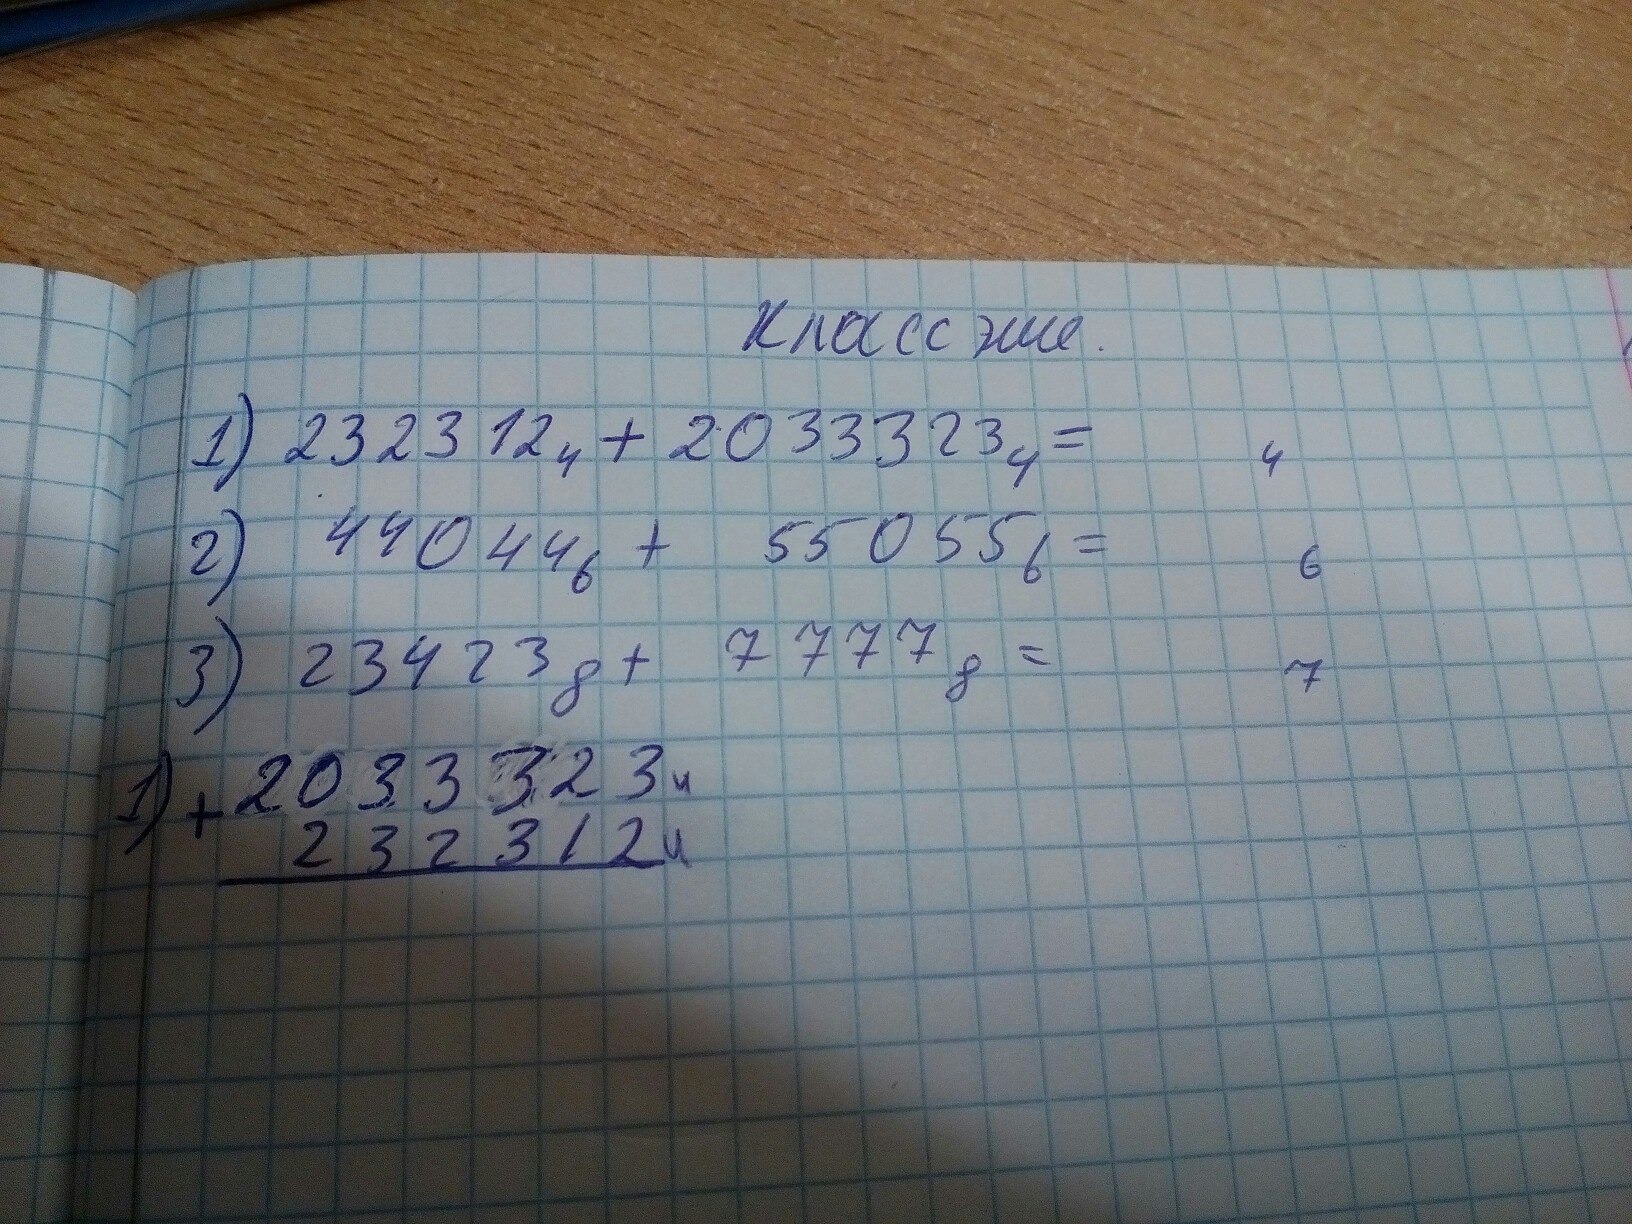 Классэже.
1) 232312₄ + 2033323₄ = 4
2) 44044₆ + 55055₆ = 6
3) 23423₈ + 7777₈ = 7
1) + 2033323₄
232312₄